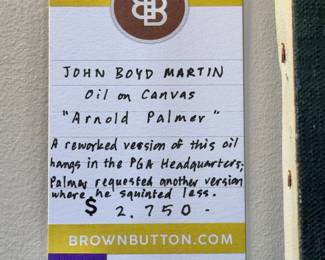 BB
JOHN BOYD MARTIN
Oil on Canvas
"Arnold Palmer"
A reworked version of this oil
hangs in the PGA Headquarters;
Palmer requested another version
where he squinted less.
$ 2.750-
BROWNBUTTON.COM